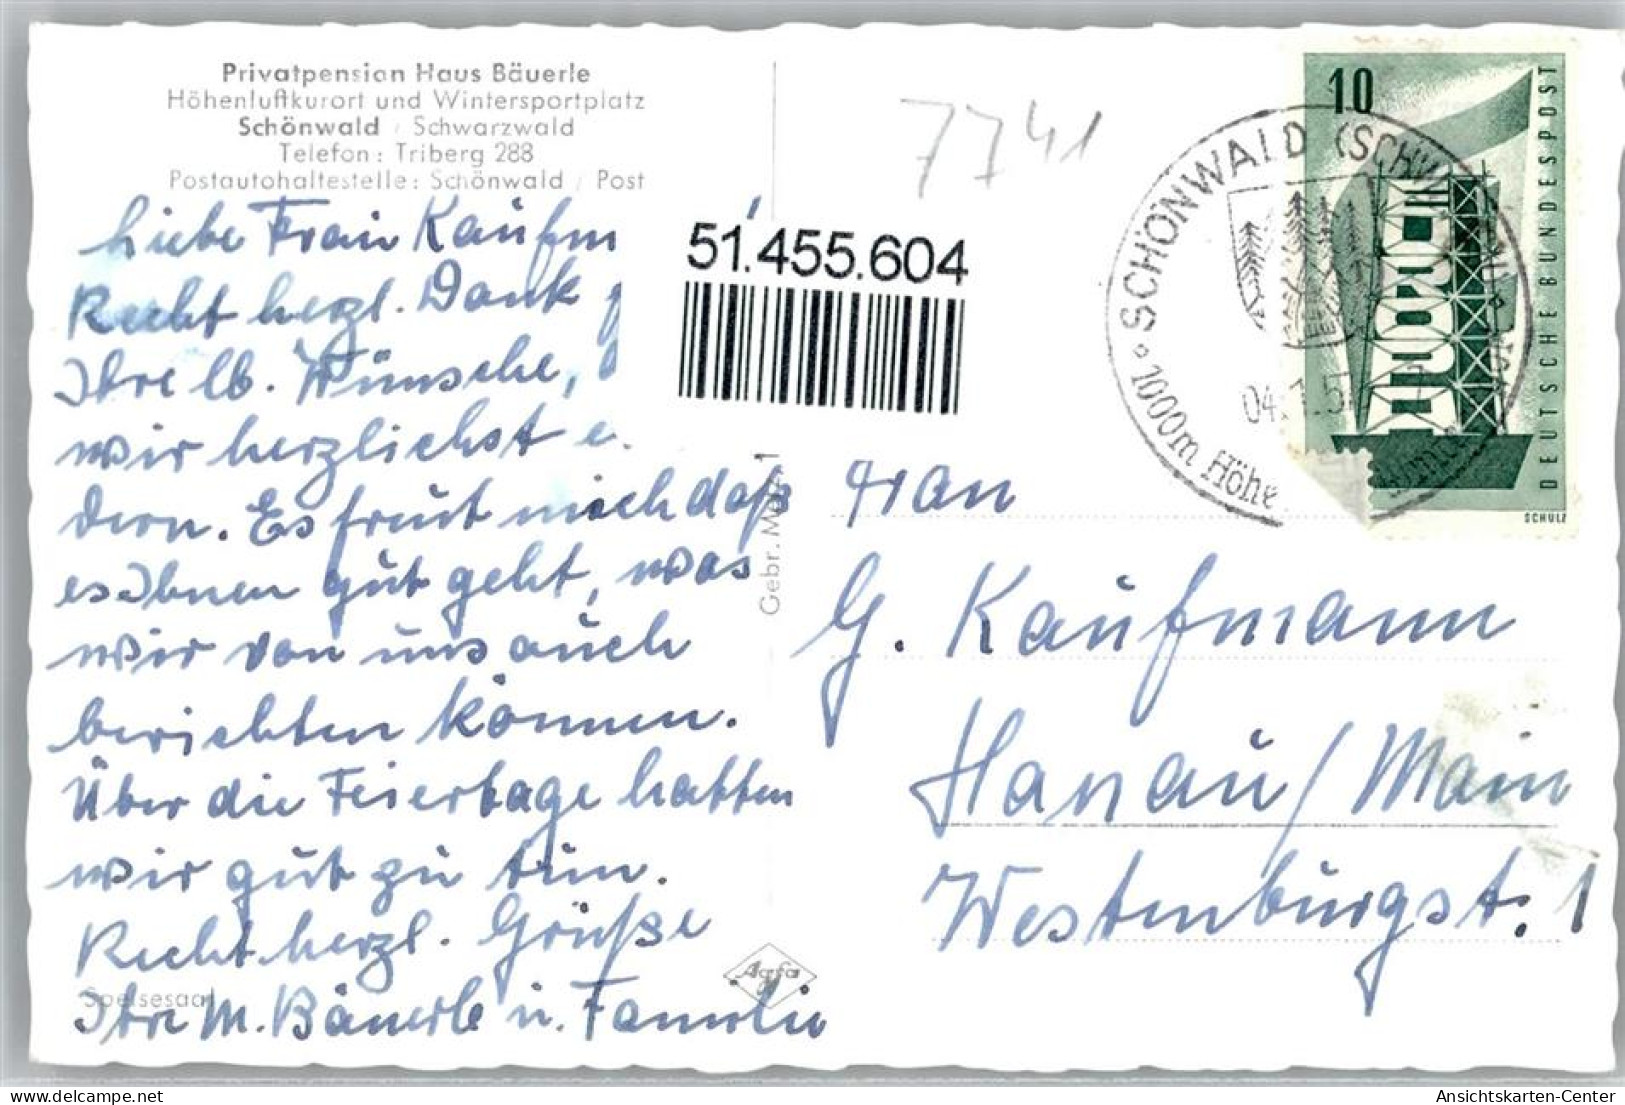 Privatpension Haus Bäuerle
Höhenluftkurort und Wintersportplatz
Schönwald / Schwarzwald
Telefon: Triberg 288
Postautohaltestelle: Schönwald / Post
Liebe Frau Kaufm
Recht herzl. Dank
Ihre lb. Wünsche,
wir herzlichst e
dern. Es freut mich daß
es Ihnen gut geht, was
wir von uns auch
berichten können.
Über die Feiertage hatten
wir gut zu tun.
Recht herzl. Grüße
Ihre M. Bäuerle u. Familie
Speisesaal
51.455.604
Gebr. M
Agfa
7741
SCHÖNWALD (SCHW
1000m Höhe
04. .57
10
DEUTSCHE BUNDESPOST
SCHULZ
Frau
G. Kaufmann
Hanau/Main
Westenburgst. 1
delcampe.net
Ansichtskarten-Center